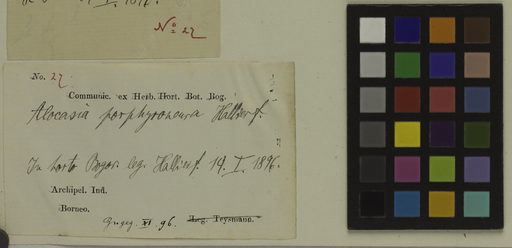 No 27
No. 27
Communic. ex Herb. Hort. Bot. Bog.
Alocasia porphyroneura Hallier f.
In horto Bogor. leg. Hallier f. 19. I. 1896.
Archipel. Ind.
Borneo.
XI 96. Leg. Teysmann.